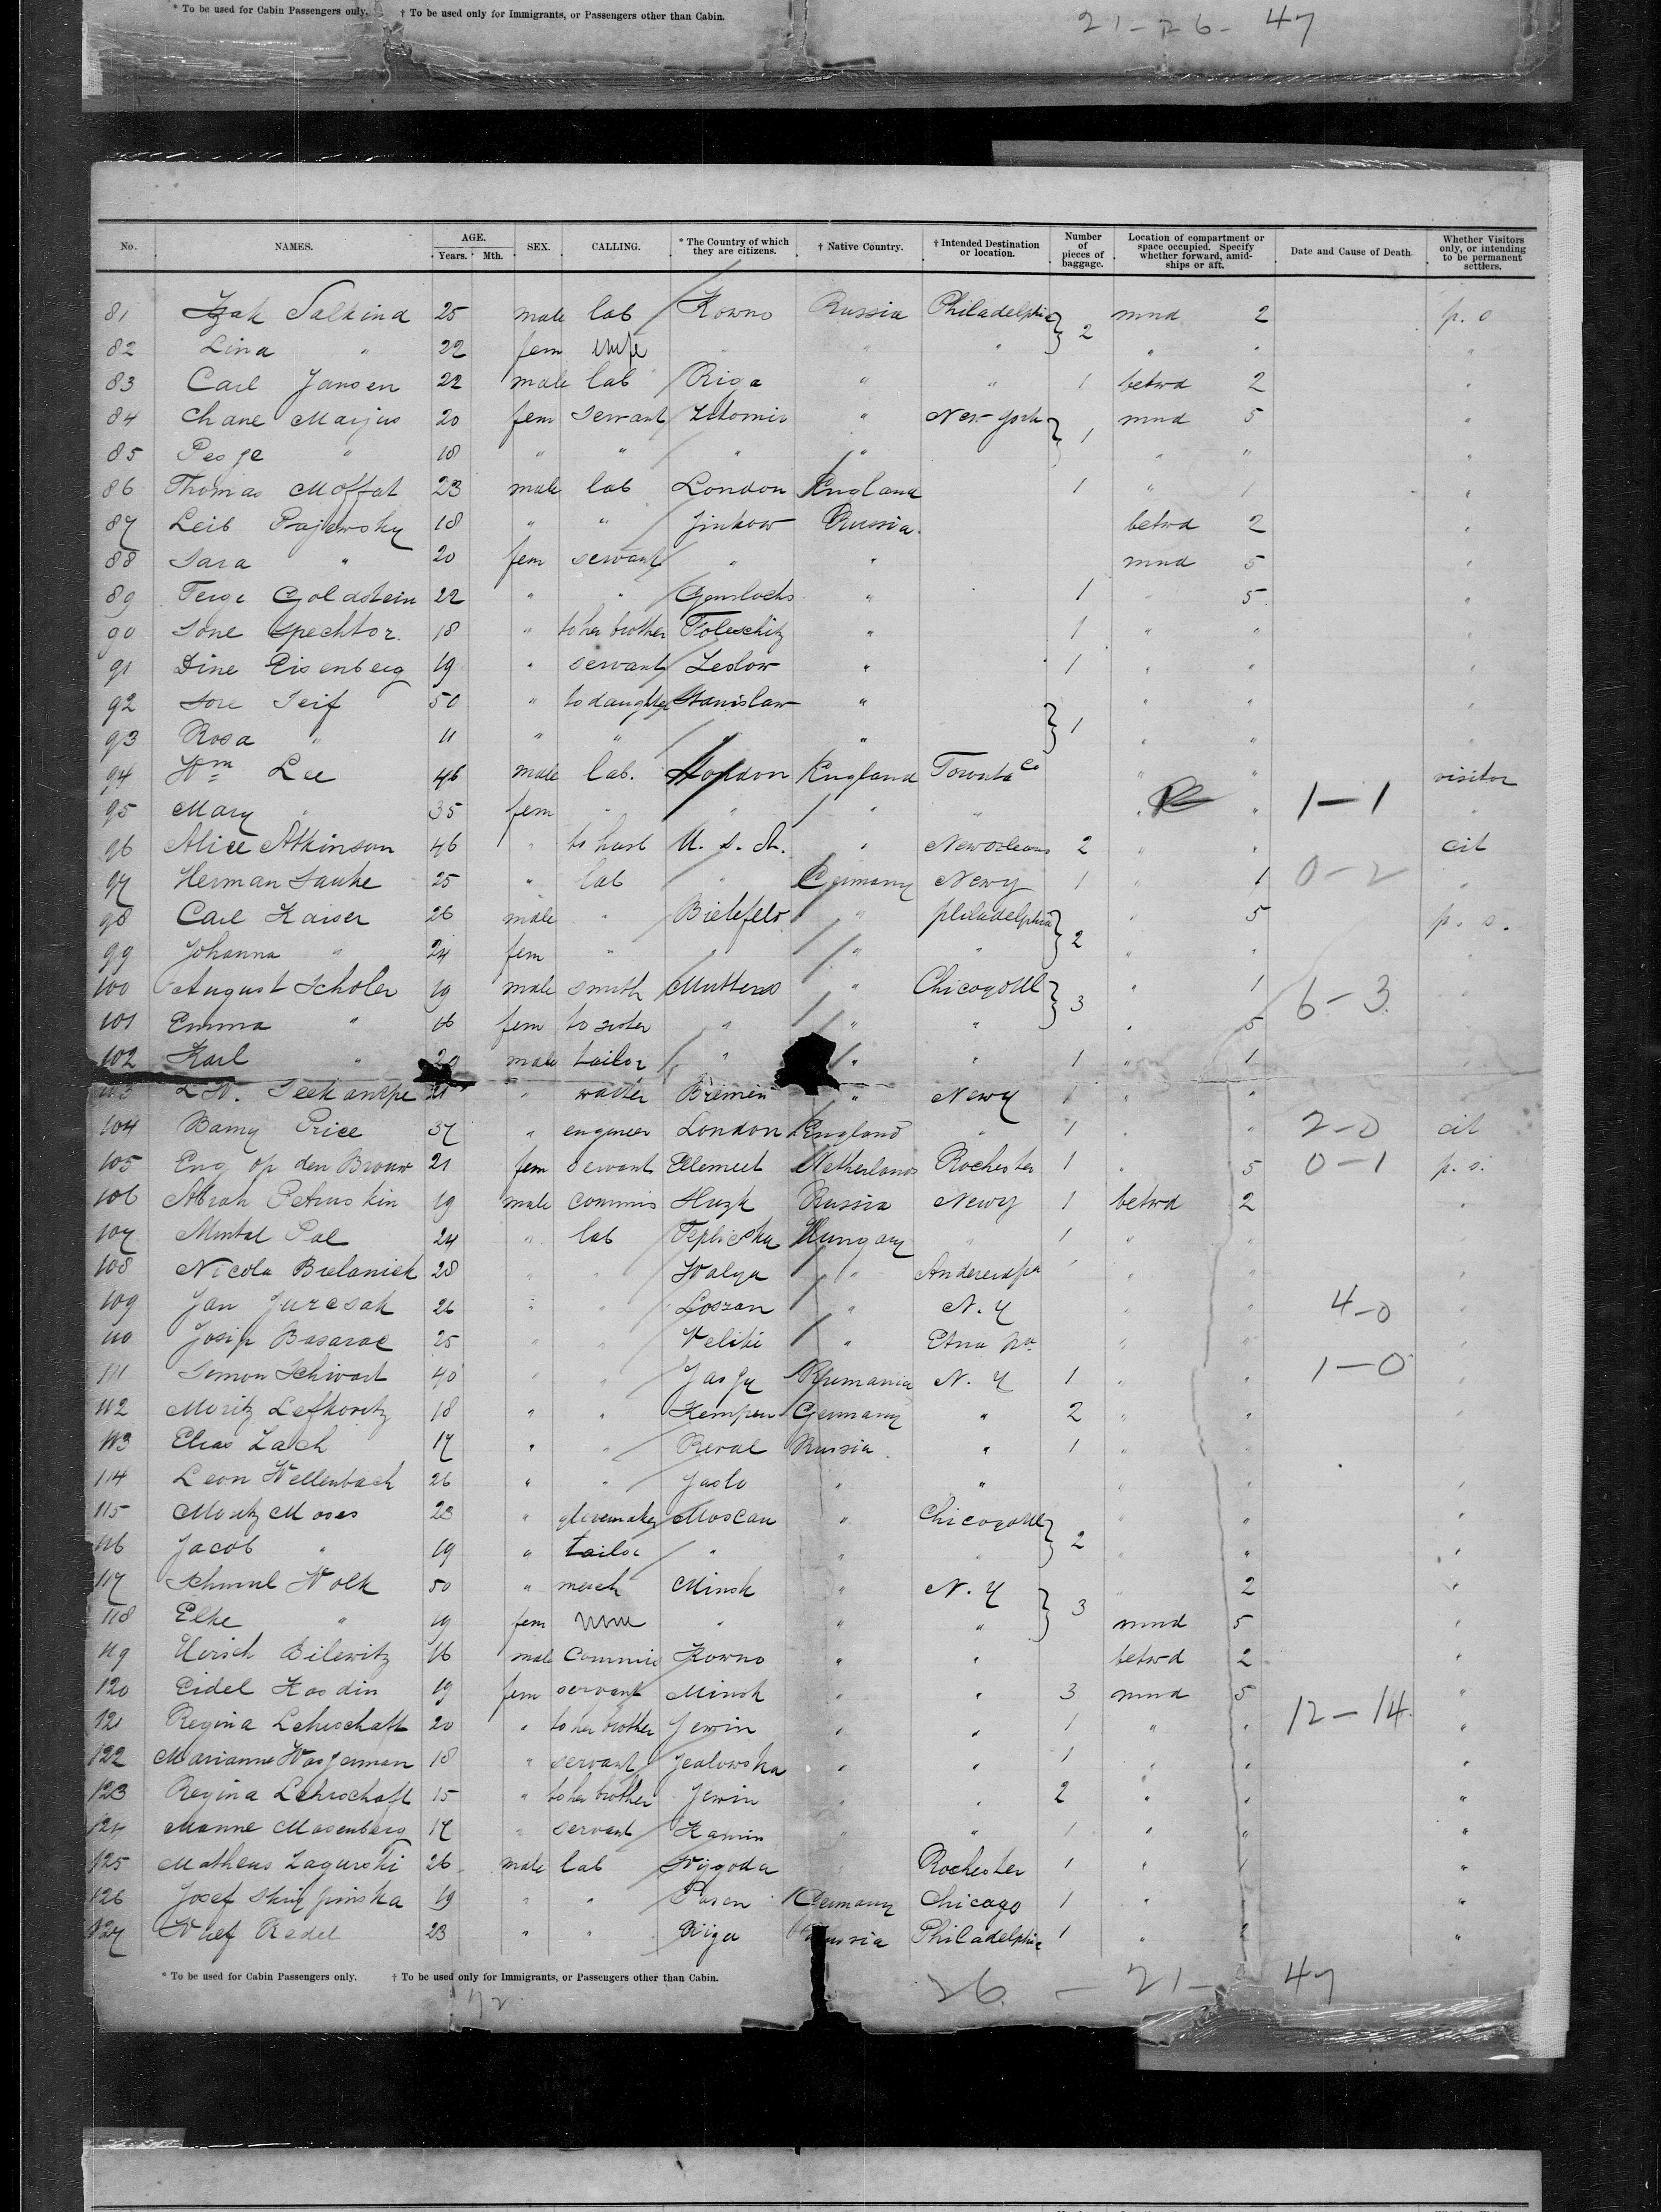 * To be used for Cabin Passengers only. † To be used only for Immigrants, or Passengers other than Cabin.
21 - 26 - 47
No. NAMES. AGE. Years. Mth. SEX. CALLING. * The Country of which they are citizens. † Native Country. † Intended Destination or location. Number of pieces of baggage. Location of compartment or space occupied. Specify whether forward, amidships or aft. Date and Cause of Death Whether Visitors only, or intending to be permanent settlers.
81 Salkind 25 male lab Kowno Russia Philadelphia 2 mnd 2
82 Lina " 22 fem wife " " " " "
83 Carl Jansen 22 male lab Riga " " 1 betwd 2 "
84 Chane 20 fem servant " New-york 1 mnd 5 "
85 Pesze " 18 " " " " " " "
86 Thomas Moffat 23 male lab London England 1 " 1 "
87 Leib Pajewsky 18 " " Russia betwd 2 "
88 Sara " 20 fem servant " " mnd 5 "
89 Feige Goldstein 22 " " " 1 " 5 "
90 Sone Spechtor 18 " to her brother " 1 " " "
91 Dine Eisenberg 19 " servant " 1 " " "
92 Sore Seif 50 " to daughter Stanislaw " 1 " " "
93 Rosa " 11 " " " " " " "
94 Wm Lee 46 male lab. London England " " visitor
95 Mary " 35 fem " " " " " " 1-1 "
96 Alice Atkinson 46 " U. S. A. " New orleans 2 " " cit
97 Herman 25 " lab " Germany New y 1 " 1 0-2 "
98 Carl Kaiser 26 male " Bielefeld " philadelphia 2 " 5 p. s.
99 Johanna " 24 fem " " " " " " "
100 August Scholer 19 male smith " Chicago Ill 3 " 1 6-3 "
101 Emma " 16 fem to sister " " " " 5 "
102 Karl " 20 male tailor " " " 1 " 1 "
103 L W. 21 " waiter Bremen " New y 1 " "
104 Price 37 " engineer London England " 1 " " 2-0 cit
105 Eng op den Brouw 21 fem servant Netherlands Rochester 1 " 5 0-1 p. s.
106 Abrah 19 male commis Russia New y 1 betwd 2 "
107 Pal 24 " lab Hungary " 1 " "
108 Nicola 28 " " " " " "
109 Jan Juresak 26 " " " N. Y " " 4-0 "
110 Josip Basarac 25 " " Veliki " Etna pa. " " "
111 Simon Schwart 40 " " Rumania N. Y 1 " " 1-0 "
112 Moritz Lefkovitz 18 " " Kempen Germany " 2 " " "
113 Elias Lach 17 " " Reval Russia " 1 " "
114 Leon Wellenbach 26 " " Jaslo " " " " "
115 Moritz Moses 23 " glovemaker Moscau " Chicago Ill 2 " " "
116 Jacob " 19 " tailor " " " " " "
117 Schmul Wolk 50 " merch Minsk " N. Y 3 " 2 "
118 Elke " 19 fem " " " mnd 5 "
119 Hirsch Bilewitz 16 male commis Kowno " " betwd 2 "
120 Eidel Kasdin 19 fem servant Minsk " " 3 mnd 5 "
121 Regina Lehrschaft 20 " to her brother Jewin " " 1 " " 12-14 "
122 Marianne Wasserman 18 " servant " " 1 " " "
123 Regina Lehrschaft 15 " to her brother Jewin " " 2 " " "
124 Manne Masenberg 17 " servant Kamin " " 1 " " "
125 Matheus Zagurski 26 male lab Wygoda " Rochester 1 " 1 "
126 Josef 19 " " Posen Germany Chicago 1 " " "
127 Redel 23 " " Riga Russia Philadelphia 1 " 2 "
* To be used for Cabin Passengers only. † To be used only for Immigrants, or Passengers other than Cabin.
26 - 21 - 47